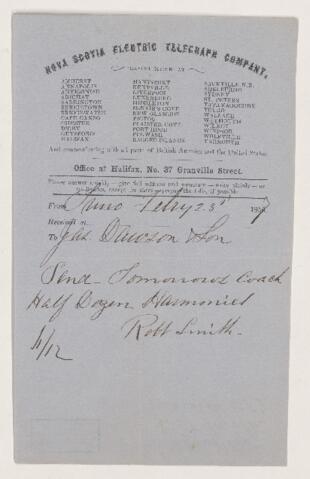 NOVA SCOTIA ELECTRIC TELEGRAPH COMPANY.
AMHERST
ANNAPOLIS
ANTIGONISH
ARICHAT
BARRINGTON
BRIDGETOWN
BRIDGEWATER
CAPE CANSO
CHESTER
DIGBY
GUYSBORO
HALIFAX
HANTSPORT
KENTVILLE
LIVERPOOL
LUNENBURG
MIDDLETON
NEW GLASGOW
PICTOU
PLAISTER COVE
PORT HOOD
PUGWASH
RAGGED ISLANDS
SACKVILLE N.B.
SHELBURNE
SYDNEY
ST. PETERS
TATAMAGOUCHE
TRURO
WALLACE
WEYMOUTH
WILMOT
WINDSOR
WOLFVILLE
YARMOUTH
And connecting with all parts of British America and the United States.
Office at Halifax, No. 37 Granville Street.
From Truro Febry 23d 1857
Received at
To Jas. Dawson & Son
Send Tomorrows Coach
Half Dozen Harmonies
Robt Smith.
11/12